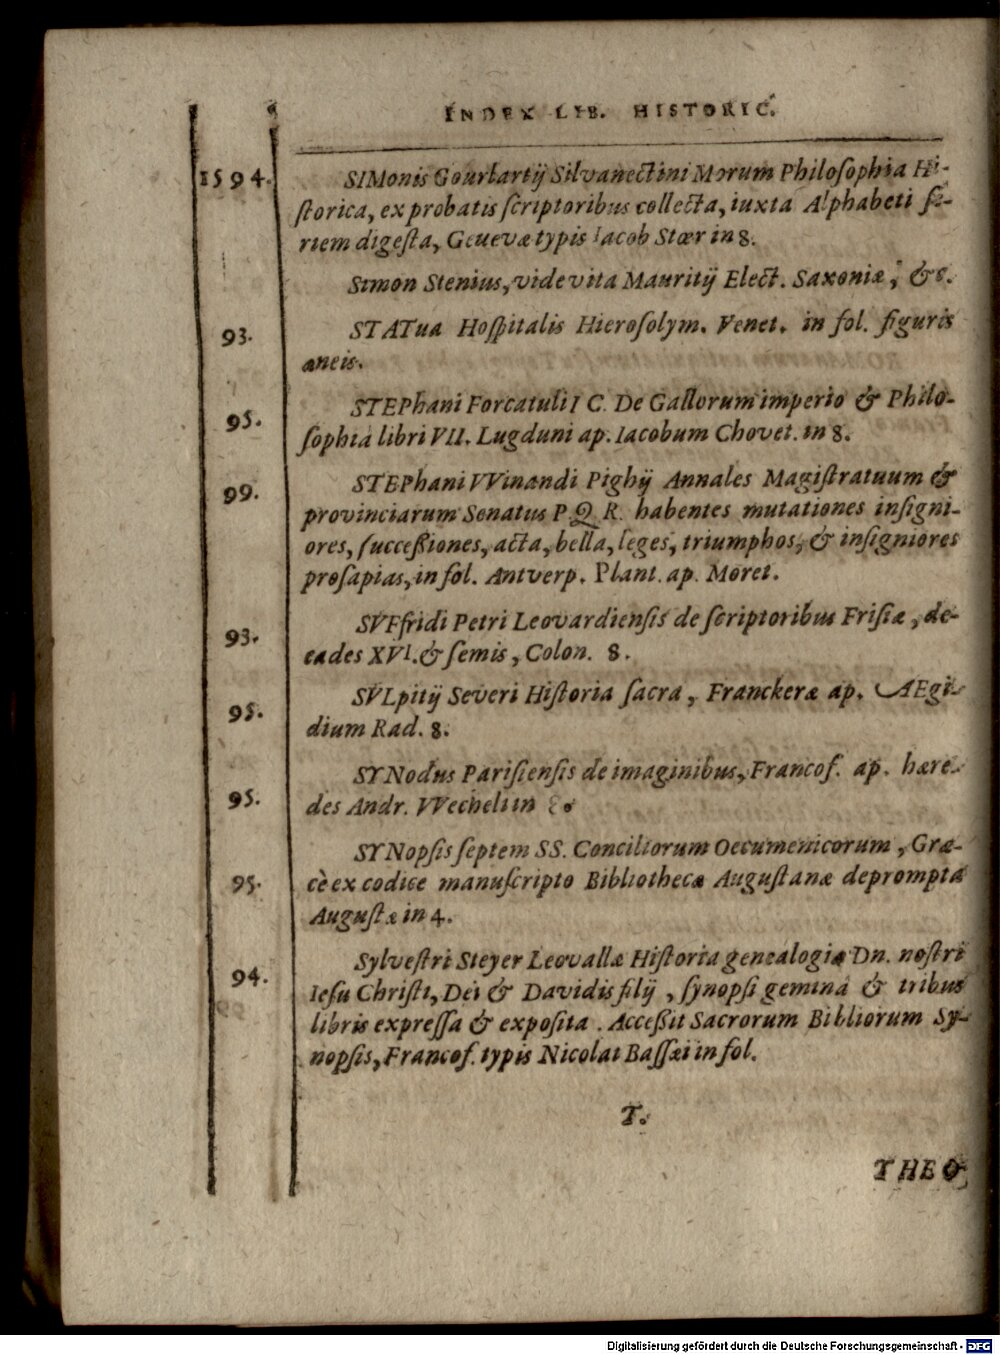 INDEX LIB. HISTORIC.
1594. SIMonis Gourlartij Silvanectini Morum Philosophia Hi-
storica, ex probatis scriptoribus collecta, iuxta Alphabeti se-
riem digesta, Genevæ typis Iacob Stœr in 8.
Simon Stenius, vide vita Mauritij Elect. Saxoniæ, &c.
93. STATua Hospitalis Hierosolym. Venet. in fol. figuris
æneis.
95. STEPhani Forcatuli I C. De Gallorum imperio & Philo-
sophia libri VII. Lugduni ap. Iacobum Chovet. in 8.
99. STEPhani VVinandi Pighij Annales Magistratuum &
provinciarum Senatus P Q R. habentes mutationes insigni-
ores, successiones, acta, bella, leges, triumphos, & insigniores
prosapias, in fol. Antverp. Plant. ap. Moret.
93. SVFfridi Petri Leovardiensis de scriptoribus Frisiæ, de-
cades XVI. & semis, Colon. 8.
95. SVLpitij Severi Historia sacra, Franckeræ ap. AEgi-
dium Rad. 8.
95. SYNodus Parisiensis de imaginibus, Francof. ap. hære-
des Andr. VVecheli in 8.
95. SYNopsis septem SS. Conciliorum Oecumenicorum, Græ-
cè ex codice manuscripto Bibliothecæ Augustanæ deprompta
Augustæ in 4.
94. Sylvestri Steyer Leovallæ Historia genealogiæ Dn. nostri
Iesu Christi, Dei & Davidis filij, synopsi gemina & tribus
libris expressa & exposita. Accessit Sacrorum Bibliorum Sy-
nopsis, Francof. typis Nicolai Bassæi in fol.
T.
THEO-
Digitalisierung gefördert durch die Deutsche Forschungsgemeinschaft - DFG